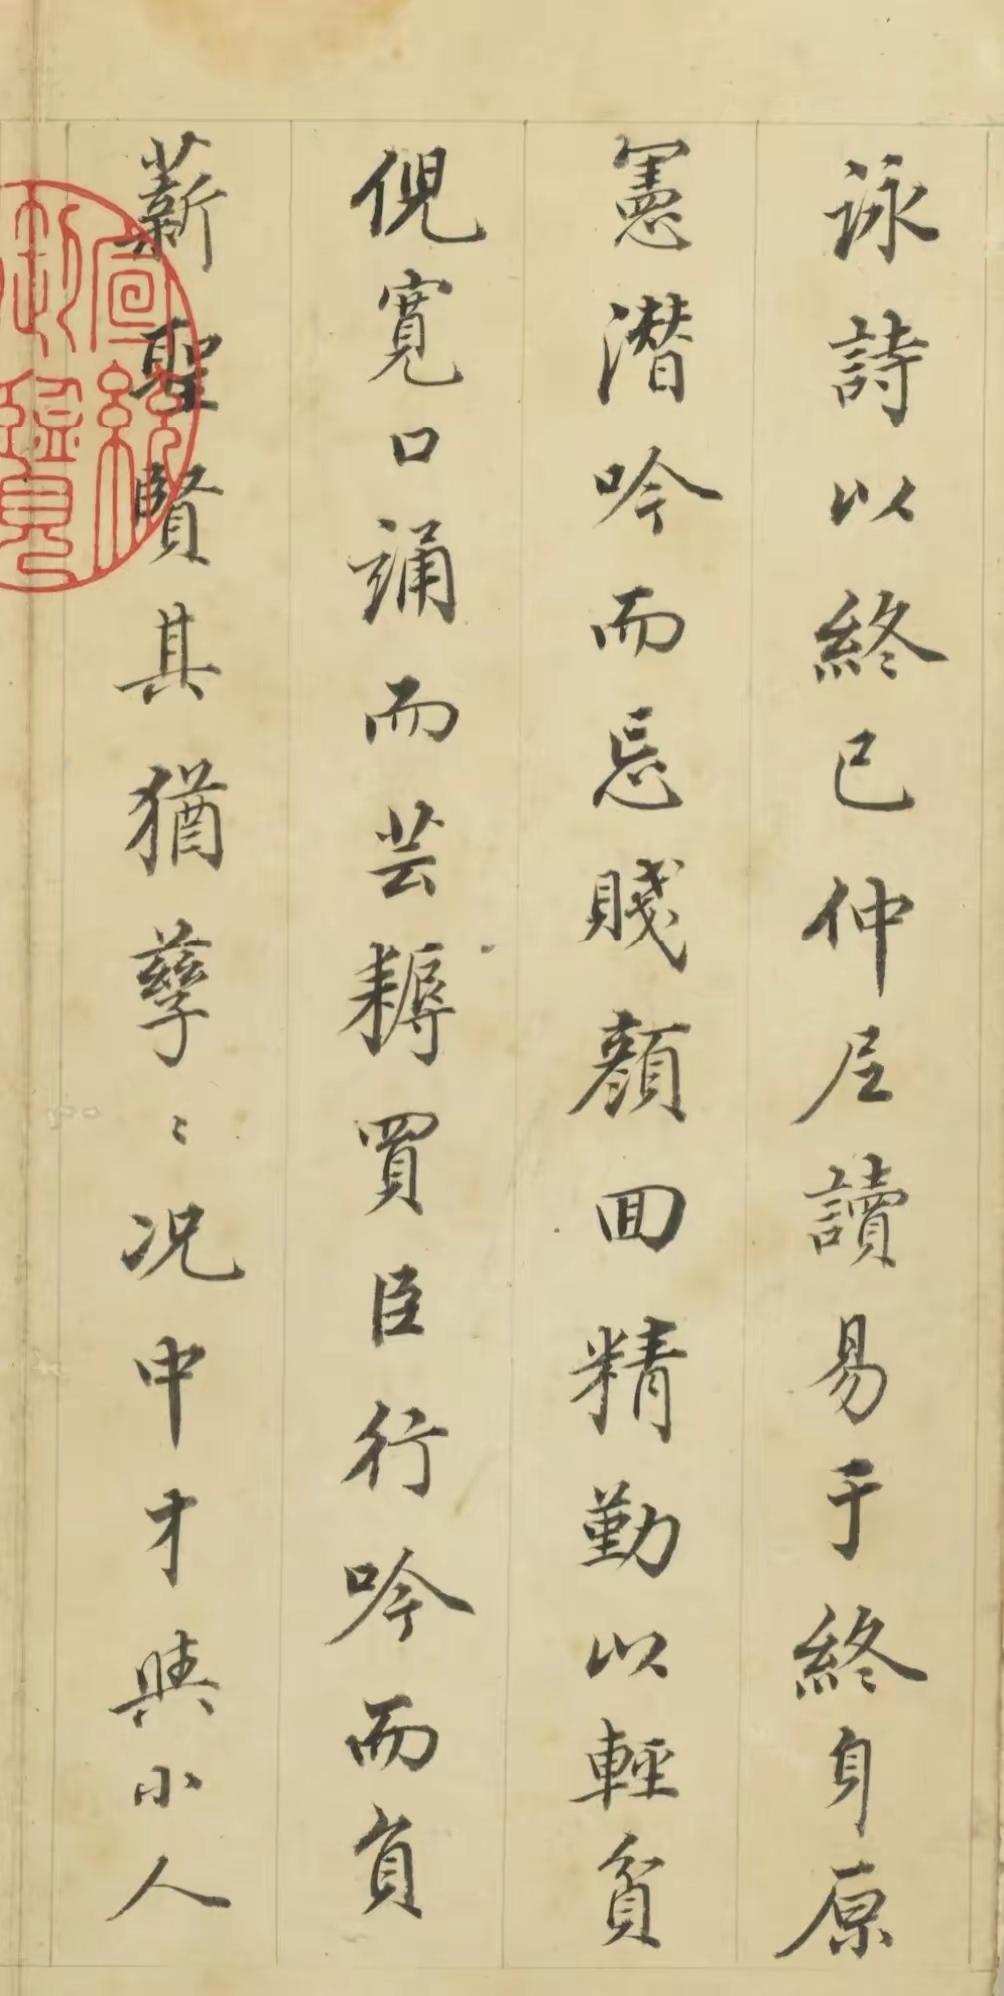 詠詩以終已仲尼讀易于終身原
憲潛吟而忘賤顏回精勤以輕貧
倪寬口誦而芸耨買臣行吟而負
薪聖賢其猶孳〻況中才與小人
宣統御覽